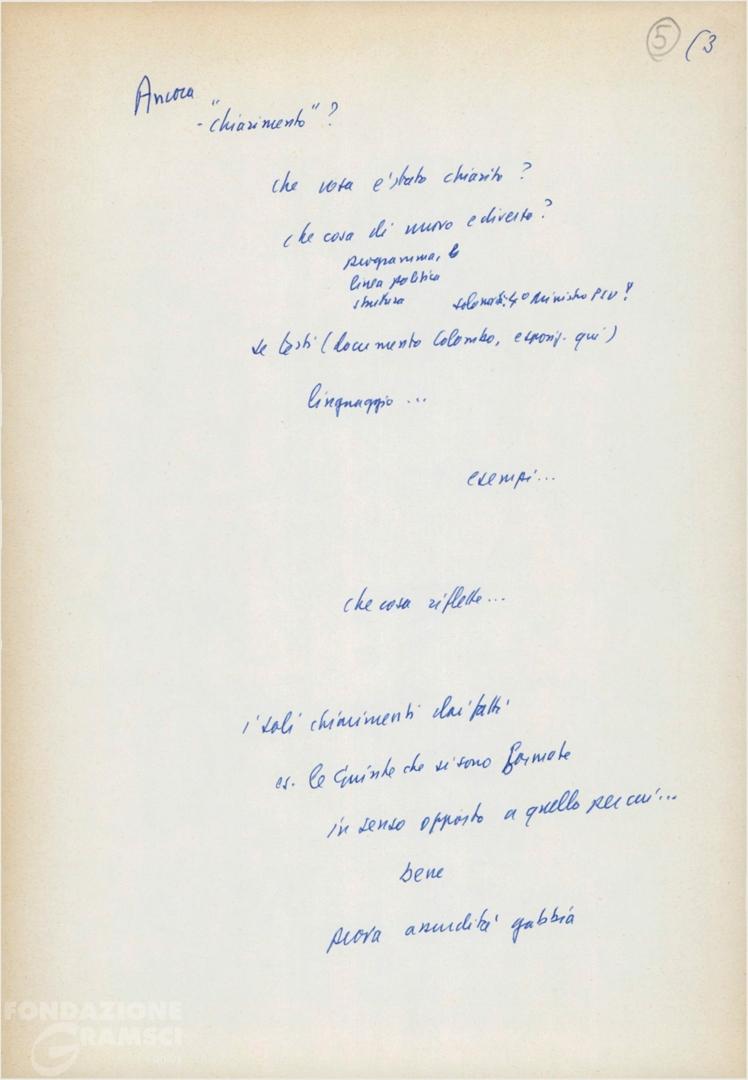 5 (3
Ancora
- "chiarimento"?
che cosa è stato chiarito?
che cosa di nuovo e diverso?
programma, 
linea politica
struttura
4° Ministro PSU!
se testi (documento Colombo, esposiz. qui)
linguaggio...
esempi...
che cosa riflette...
i soli chiarimenti dai fatti
es. le Giunte che si sono formate
in senso opposto a quello per cui...
bene
prova assurdità gabbia
FONDAZIONE
GRAMSCI